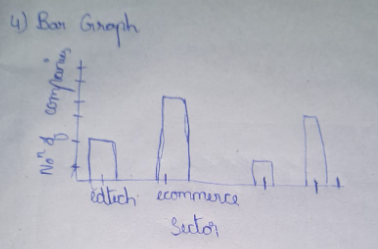 4) Bar Graph
Noⁿ of companies
edtech ecommerce
Sector